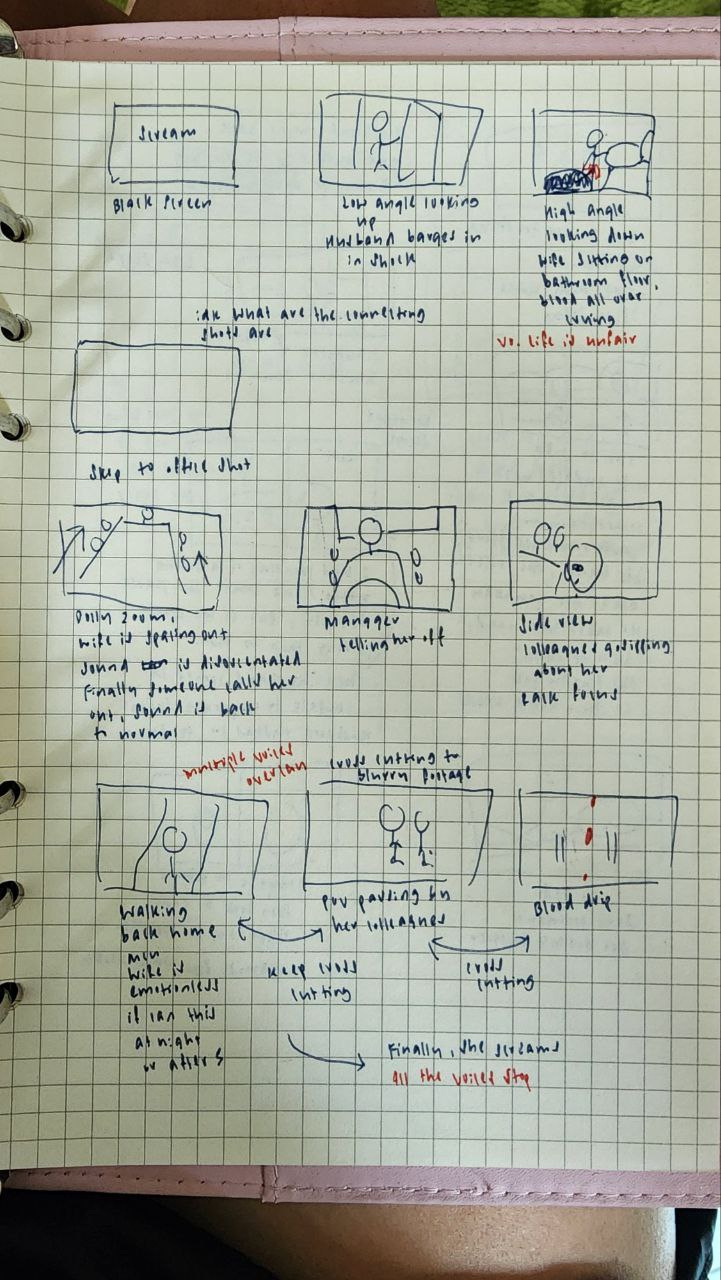 scream
Black screen
Low angle looking
up
Husband barges in
in shock
High angle
looking down
wife sitting on
bathroom floor,
blood all over
crying
vo. life is unfair
idk what are the connecting
shots are
skip to office shot
Dolly zoom,
wife is spacing out
sound is disorientated
Finally someone calls her
out, sound is back
to normal
Manager
telling her off
side view
colleagues gossiping
about her
rack focus
multiple voices
overlap
cross cutting to
blurry footage
walking
back home
mcu
wife is
emotionless
if can this
at night
or after 5
pov passing by
her colleagues
Blood drip
keep cross
cutting
cross
cutting
Finally, she screams
All the voices stop